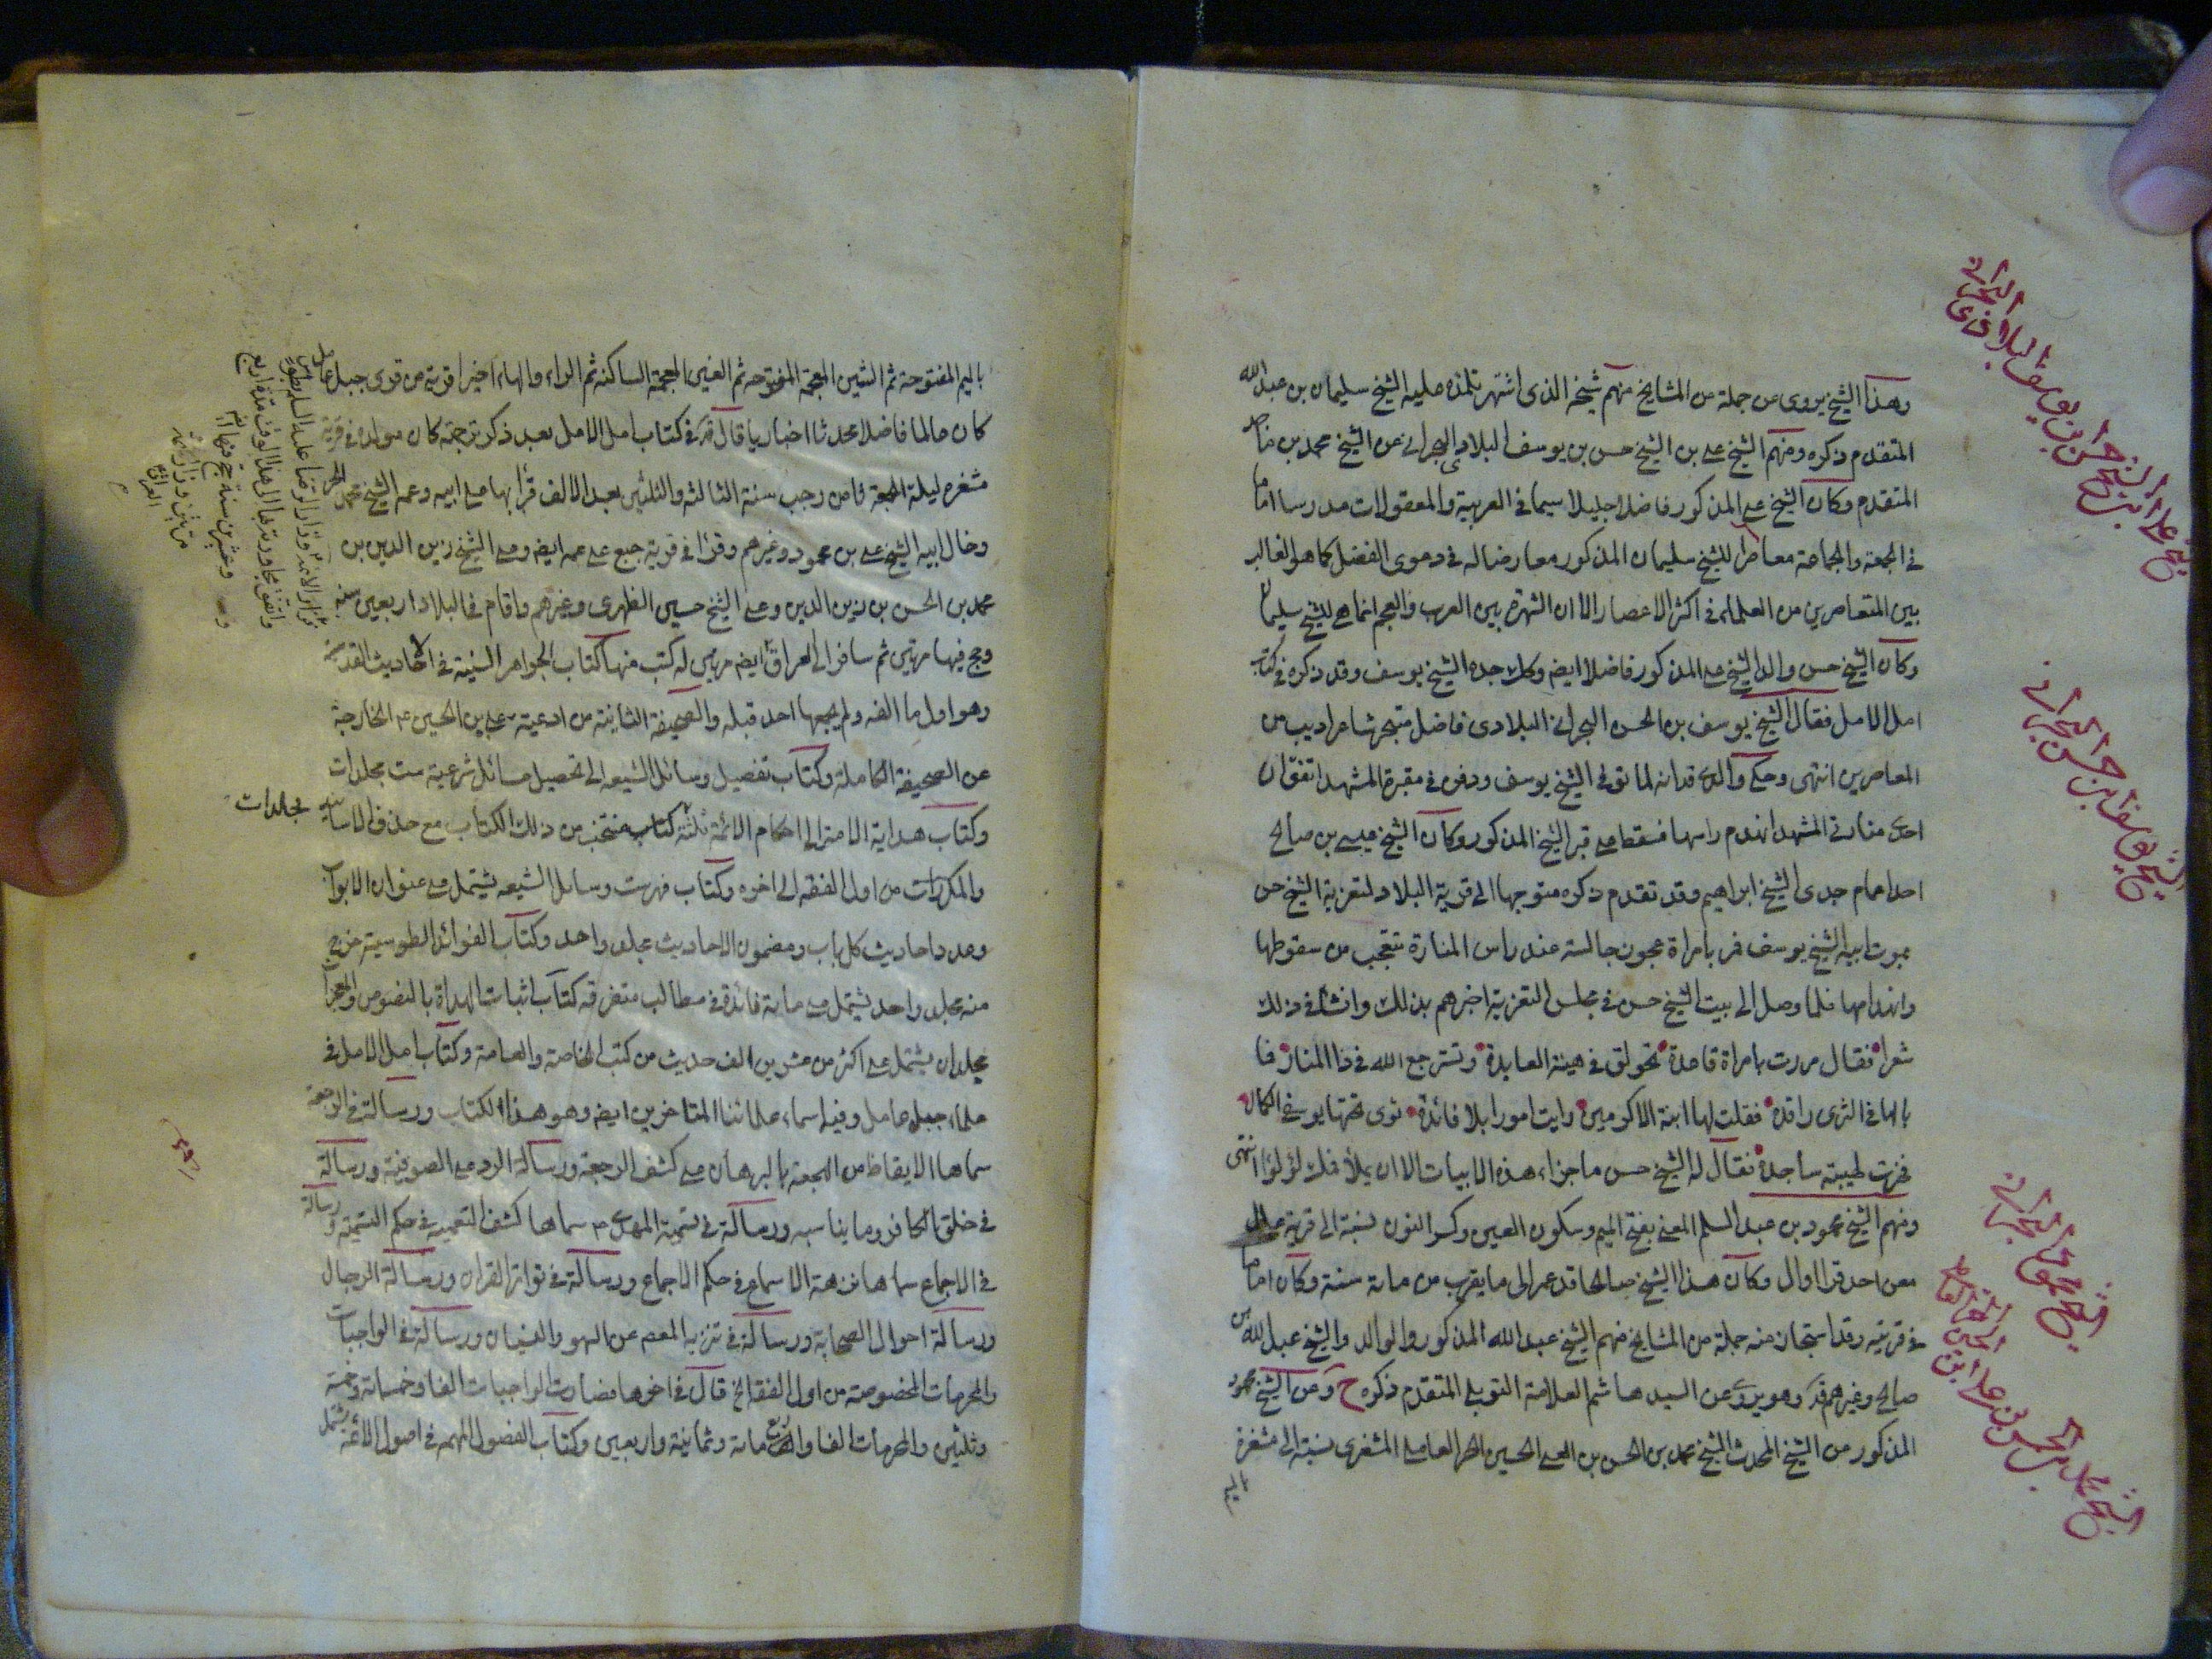 وهذا الشيخ يروي عن جملة من المشايخ منهم شيخه الذى اشتهر تلمذه عليه الشيخ سليمان بن عبد الله
المتقدم ذكره ومنهم الشيخ على بن الشيخ حسن بن يوسف البلادي البحرانى عن الشيخ محمد بن
المتقدم وكان الشيخ على المذكور فاضلا جليلا سيما فى العربية والمعقولات مدرسا اماما
فى الجمعة والجماعة معاصرا للشيخ سليمان المذكور معارضا له فى دعوى الفضل كما هو الغالب
بين المتعاصرين من العلماء فى اكثر الاعصار الا ان الشهرة بين العرب والعجم انما هى للشيخ سليمان
وكان الشيخ حسن والد الشيخ على المذكور فاضلا ايضا وكذلك جده الشيخ يوسف وقد ذكره فى كتاب
امل الامل فقال الشيخ يوسف بن الحسن البحرانى البلادى فاضل متبحر شاعر اديب من
المعاصرين انتهى وحكى والدى قد انه لما توفى الشيخ يوسف ودفن فى مقبرة المشهد اتفق ان
احدى منارتى المشهد انهدم راسها فسقط على قبر الشيخ المذكور وكان الشيخ عيسى بن صالح
احد اعمام جدى الشيخ ابراهيم وقد تقدم ذكره متوجها الى قرية البلاد لتعزية الشيخ حسن
بموت ابيه الشيخ يوسف فمر بامراة عجوز جالسة عند راس المنارة تتعجب من سقوطها
وانهدامها فلما وصل الى بيت الشيخ حسن فى مجلس التعزية اخبرهم بذلك وانشأ فى ذلك
شعرا فقال مررت بامراة قاعدة تحولق فى هيئة العابدة وتسترجع الله فى ذا المنار فما
بالها فى الثرى راقدة فقلت لها ابنة الاكرمين رايت امورا بلا فائدة ثوى تحتها يوسفى الكمال
فخرت لهيبته ساجدة فقال له الشيخ حسن ما جزاء هذه الابيات الا ان يملأ فمك لؤلؤا انتهى
ومنهم الشيخ محمود بن عبد السلم المعنى بفتح الميم وسكون العين وكسر النون نسبة الى قرية
معن احد قرى اوال وكان هذا الشيخ صالحا قد عمر الى ما يقرب من مائة سنة وكان اماما
فى قريته وقد استجاز منه جملة من المشايخ منهم الشيخ عبد الله المذكور والوالد والشيخ عبد الله بن
صالح وغيرهم قد وهو يروى عن السيد هاشم العلامة التوبلى المتقدم ذكره ح وعن الشيخ محمود
المذكور عن الشيخ المحدث الشيخ محمد بن الحسن بن على الحسين الحر العاملى المشغرى نسبة الى مشغرة
الشيخ على بن الشيخ حسن بن يوسف البلادي البحرانى
الشيخ يوسف بن حسن البحرانى
الشيخ محمود البحرانى
الشيخ محمد بن الحسن بن على بن الحسين الحر العاملى
بالميم المفتوحة ثم الشين المعجمة المفتوحة ثم الغين المعجمة الساكنة ثم الراء والهاء اخيرا قرية من قرى جبل عامل
كان عالما فاضلا محدثا اخباريا قال قد فى كتاب امل الامل بعد ذكر ترجمته كان مولده فى قرية
مشغره ليلة الجمعة ثامن رجب سنة الثالثة والثلثين بعد الالف قرأ بها على ابيه وعمه الشيخ محمد الحر
وخال ابيه الشيخ على بن محمود وغيرهم وقرا فى قرية جبع على عمه ايضا وعلى الشيخ زين الدين بن
محمد بن الحسن بن زين الدين وعلى الشيخ حسين الظهرى وغيرهم واقام فى البلاد اربعين سنة
وحج فيها مرتين ثم سافر الى العراق ايضا مرتين له كتب منها كتاب الجواهر السنية فى الاحاديث القدسية
وهو اول ما الفه ولم يجمعها احد قبله والصحيفة الثانية من ادعية على بن الحسين ع الخارجة
عن الصحيفة الكاملة وكتاب تفصيل وسائل الشيعه الى تحصيل مسائل الشرعية ست مجلدات
وكتاب هداية الامة الى احكام الائمة ثلثة كتاب منتخب من ذلك الكتاب مع حذف الاسانيد
مجلدات
والمكررات من اول الفقه الى اخره وكتاب فهرست وسائل الشيعه يشتمل على عنوان الابواب
وعدد احاديث كل باب ومضمون الاحاديث مجلد واحد وكتاب الفوائد الطوسية خرج
منه مجلد واحد يشتمل على مائة فائدة فى مطالب متفرقه كتاب اثبات الهداة بالنصوص والمعجزات
مجلدان يشتمل على اكثر من عشرين الف حديث من كتب الخاصة والعامة وكتاب امل الامل فى
علماء جبل عامل وفيه اسماء علمائنا المتاخرين ايضا وهو هذا الكتاب ورسالة فى الرجعة
سماها الايقاظ من الهجعة بالبرهان على كشف الرجعة ورسالة الرد على الصوفية ورسالة
فى خلق الكافر وما يناسبه ورسالة فى تسمية المهدى ع سماها كشف التعميه فى حكم التسمية ورسالة
فى الاجماع سماها نزهة الاسماع فى حكم الاجماع ورسالة فى تواتر القران ورسالة الرجال
ورسالة احوال الصحابة ورسالة فى تنزيه المعصوم عن السهو والنسيان ورسالة فى الواجبات
والمحرمات المنصوصة من اول الفقه الخ قال فى اخرها فصارت الواجبات الفا وخمسمائة وخمسة
وثلثين والمحرمات الفا واربع مائة وثمانية واربعين وكتاب الفصول المهمه فى اصول الائمة يشتمل